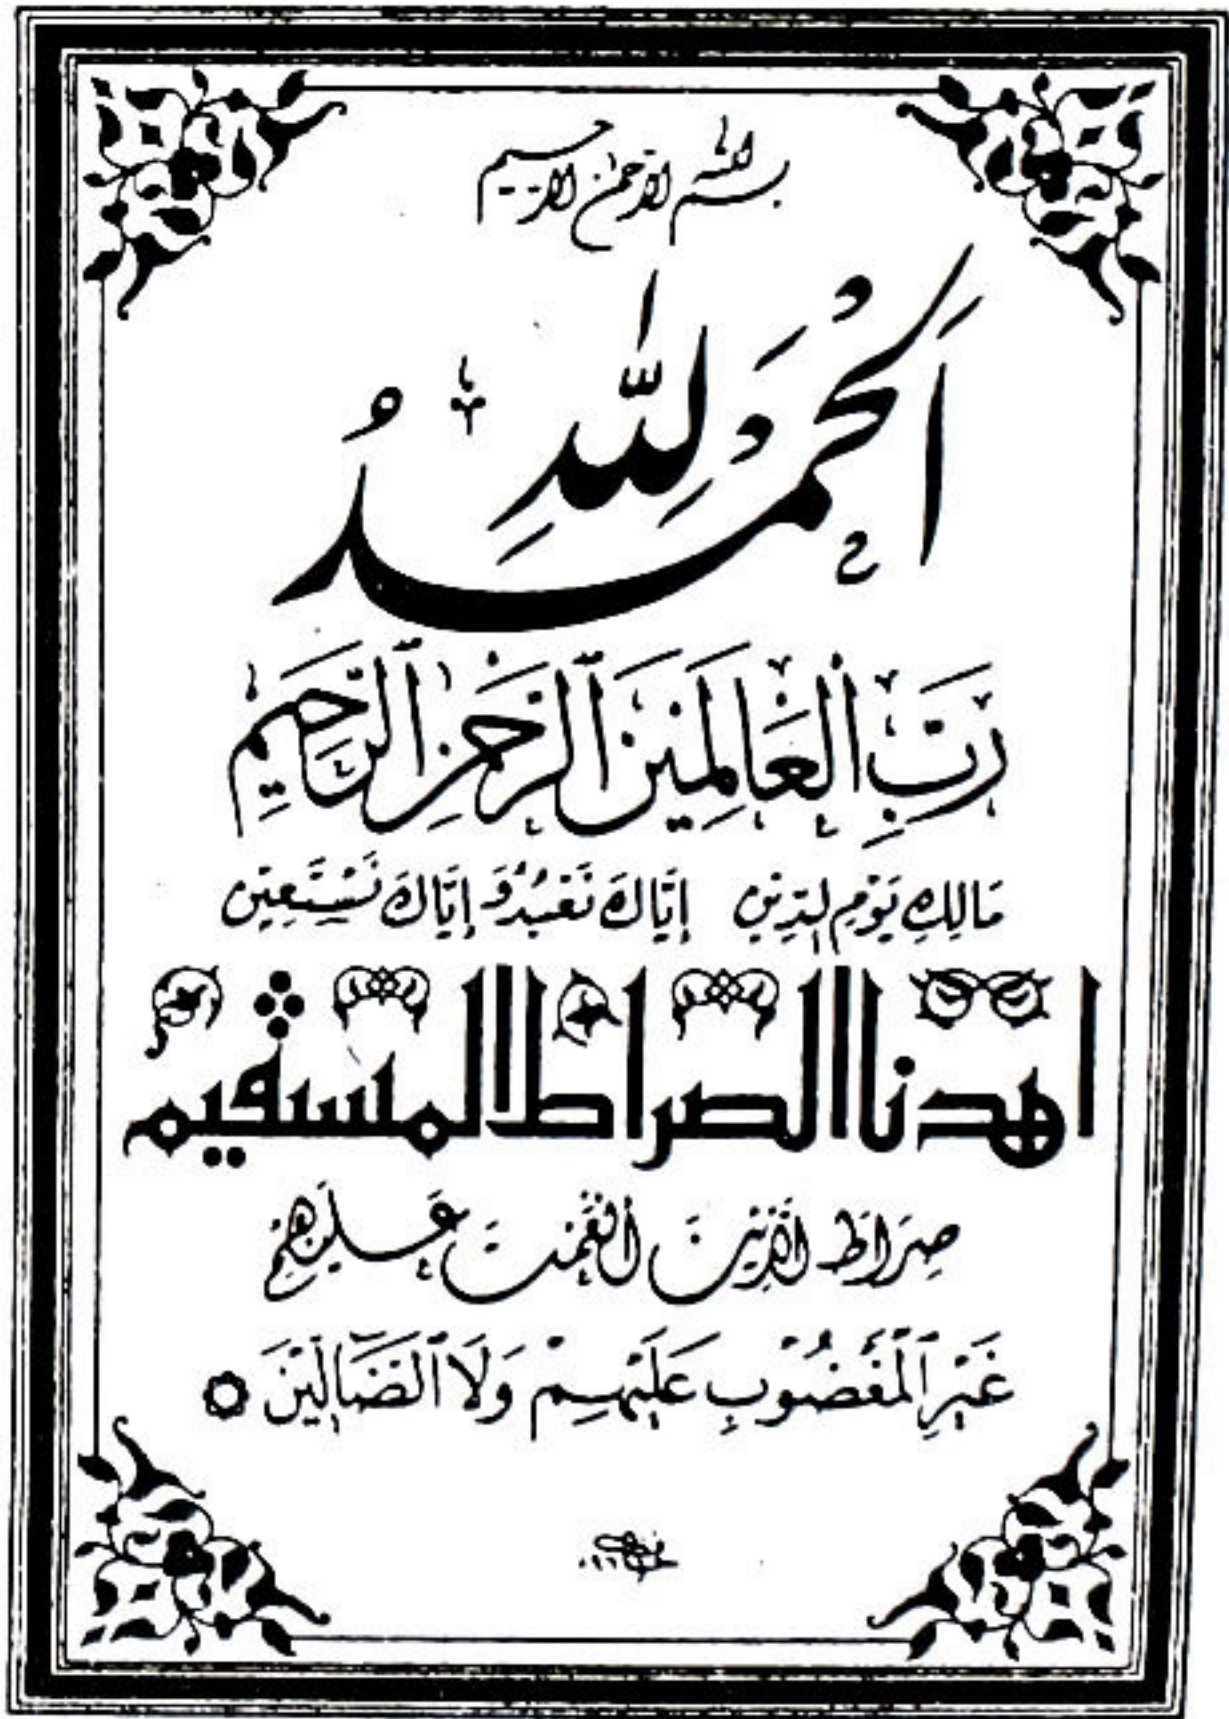 بسم الله الرحمن الرحيم
اَلْحَمْدُ لِلّٰهِ
رَبِّ الْعَالَمِينَ ٱلرَّحْمٰنِ ٱلرَّحِيمِ
مَالِكِ يَوْمِ الدِّينِ إِيَّاكَ نَعْبُدُ وَ إِيَّاكَ نَسْتَعِين
اهدنا الصراط المستقيم
صِرَاطَ الَّذِينَ أَنْعَمْتَ عَلَيْهِمْ
غَيْرِ ٱلْمَغْضُوبِ عَلَيْهِمْ وَلَا ٱلضَّالِّينَ